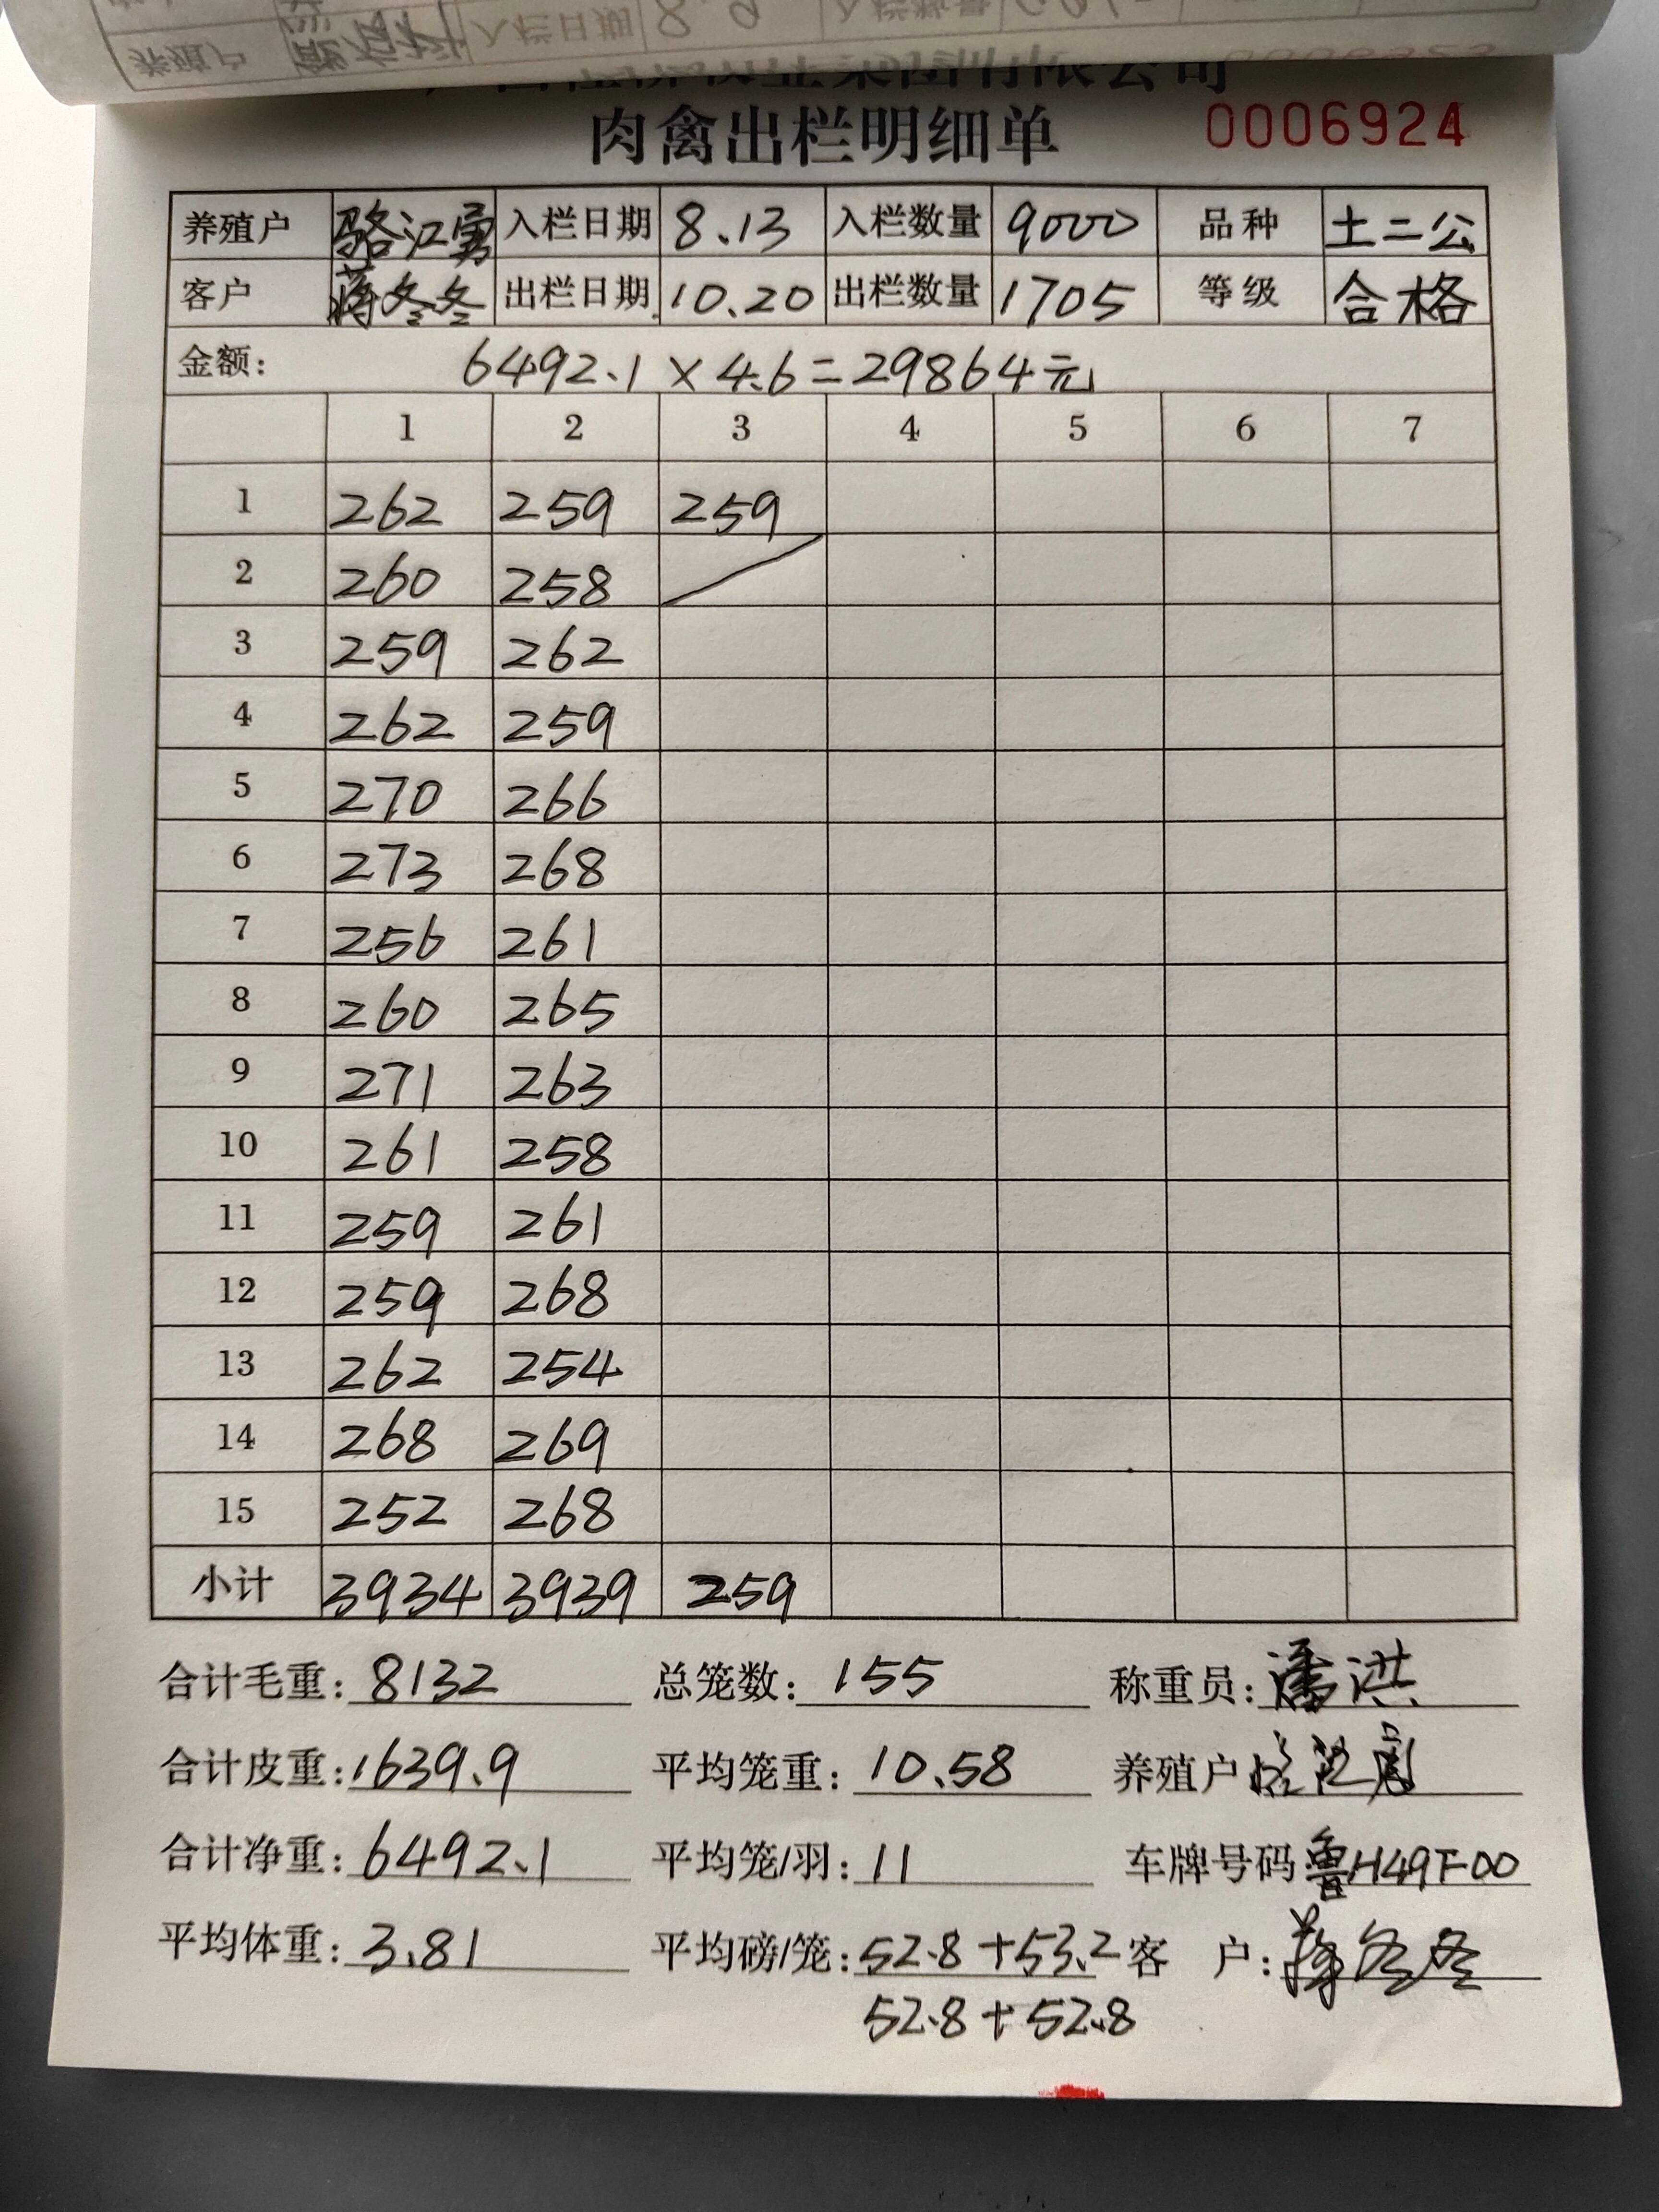 入栏日期 8.
集团有限公司
肉禽出栏明细单 0006924
养殖户 骆江勇 入栏日期 8.13 入栏数量 9000 品种 土二公
客户 蒋冬冬 出栏日期 10.20 出栏数量 1705 等级 合格
金额: 6492.1×4.6=29864元
1 2 3 4 5 6 7
1 262 259 259
2 260 258
3 259 262
4 262 259
5 270 266
6 273 268
7 256 261
8 260 265
9 271 263
10 261 258
11 259 261
12 259 268
13 262 254
14 268 269
15 252 268
小计 3934 3939 259
合计毛重: 8132 总笼数: 155 称重员: 潘洪
合计皮重: 1639.9 平均笼重: 10.58 养殖户 骆江勇
合计净重: 6492.1 平均笼/羽: 11 车牌号码 鲁H49F00
平均体重: 3.81 平均磅/笼: 52.8+53.2 客 户: 蒋冬冬
52.8+52.8